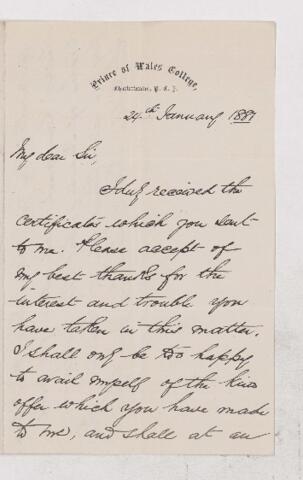 Prince of Wales College,
Charlottetown, P. E. I.
24th January 1889
My dear Sir,
I duly received the
certificates which you sent
to me. Please accept of
my best thanks for the
interest and trouble you
have taken in this matter.
I shall only be too happy
to avail myself of the kind
offer which you have made
to me, and shall at an